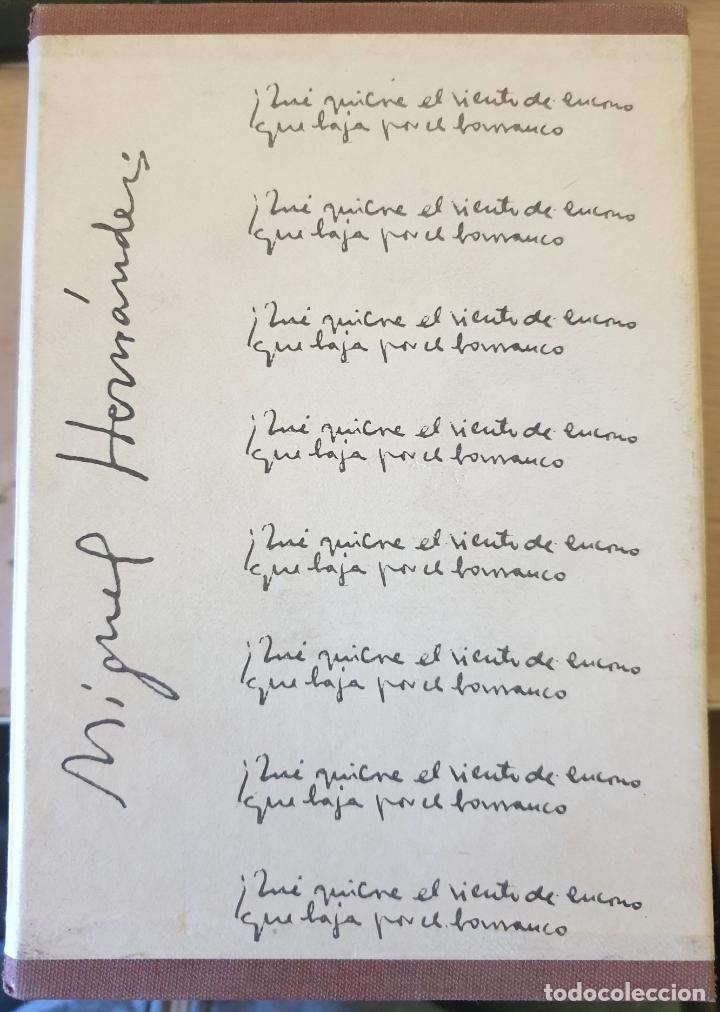 Miguel Hernández
¿Qué quiere el viento de encono
que baja por el barranco
¿Qué quiere el viento de encono
que baja por el barranco
¿Qué quiere el viento de encono
que baja por el barranco
¿Qué quiere el viento de encono
que baja por el barranco
¿Qué quiere el viento de encono
que baja por el barranco
¿Qué quiere el viento de encono
que baja por el barranco
¿Qué quiere el viento de encono
que baja por el barranco
¿Qué quiere el viento de encono
que baja por el barranco
todocoleccion